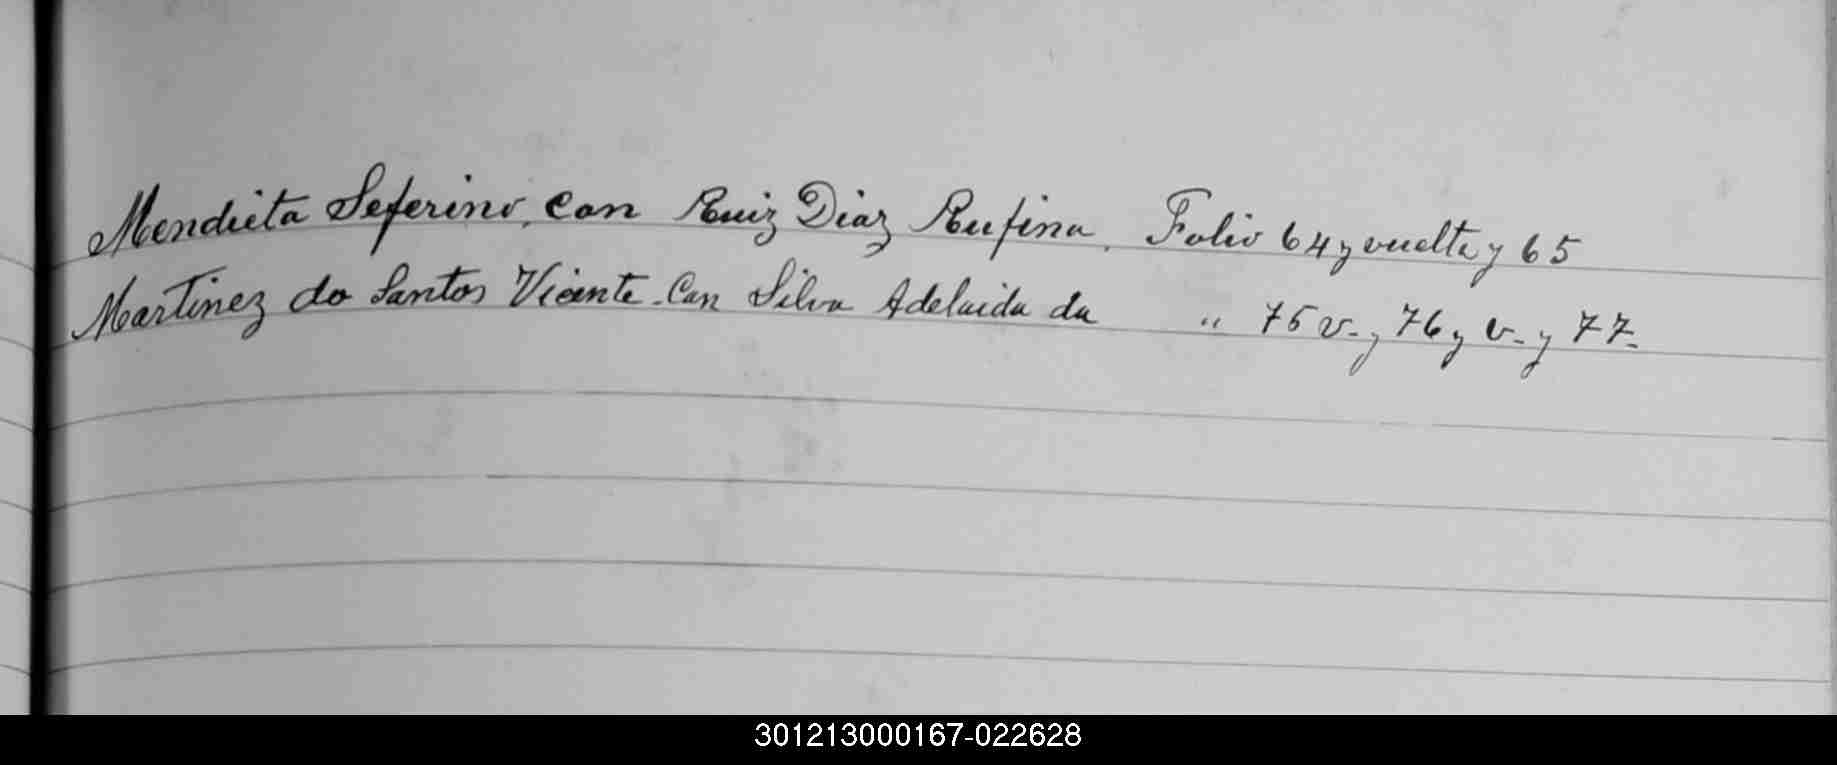 Mendieta Seferino, con Ruiz Diaz Rufina. Folio 64 y vuelta y 65
Martinez do Santos Vicente. Con Silva Adelaida da " 75 v. y 76 y v. y 77.
301213000167-022628